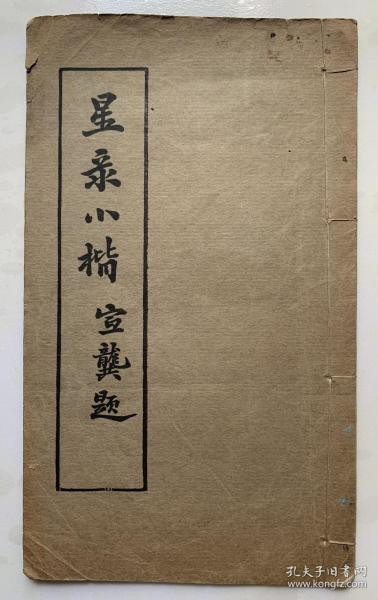 星彔小楷 宣龔題
孔夫子旧书网
www.kongfz.com